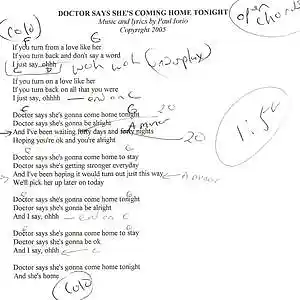 DOCTOR SAYS SHE'S COMING HOME TONIGHT
Music and lyrics by Paul Iorio
Copyright 2005
open chords
(solo)
G
If you turn from a love like her
If you turn back and don't say a word
I just say, ohhh
wok wok
If you turn on a love like her
If you turn back on all that you were
I just say, ohhhh — end on C
1:54
G
Doctor says she's gonna come home tonight
20
Doctor says she's gonna be alright
A minor
And I've been waiting forty days and forty nights
20
Hoping you're ok and you're alright
G
Doctor says she's gonna come home to stay
Doctor says she's getting stronger everyday
And I've been hoping it would turn out just this way
A minor
We'll pick her up later on today
G
Doctor says she's gonna come home tonight
Doctor says she's gonna be alright
And I say, ohhh — end on C
G
Doctor says she's gonna come home to stay
Doctor says she's gonna be ok
And I say, ohhh
C
Doctor says she's gonna come home tonight
And she's home
(solo)